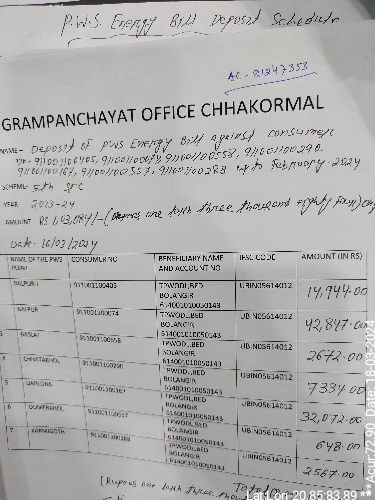 P.W.S. Energy Bill Deposit Schedule
AC - 81247353
GRAMPANCHAYAT OFFICE CHHAKORMAL
NAME- Deposit of PWS Energy Bill against consumer
no- 911001100405, 911001100074, 911001100558, 911001100290
911001100167, 911001100557, 911001100288 up to February-2024
SCHEME- 5th SFC
YEAR 2023-24
AMOUNT RS 1,03,084/- (Rupees one lakh three thousand eighty four) only
Date-16/03/2024
NAME OF THE PWS POINT CONSUMER NO BENEFICIARY NAME AND ACCOUNT NO IFSC CODE AMOUNT (IN RS)
BALPUR I 911001100405 TPWODL,BED BOLANGIR 614001010050143 UBIN05614012 14,944.00
BALPUR 911001100074 TPWODL,BED BOLANGIR 614001010050143 UBIN05614012 42,847.00
3 911001100558 TPWODL,BED BOLANGIR 614001010050143 UBIN05614012 2672.00
4 CHHATAKHOL 911001100290 TPWODL,BED BOLANGIR 614001010050143 UBIN05614012 7334.00
5 911001100167 TPWODL,BED BOLANGIR 614001010050143 UBIN05614012 32,072.00
6 911001100557 TPWODL,BED BOLANGIR 614001010050143 UBIN05614012 648.00
7 911001100288 TPWODL,BED BOLANGIR 614001010050143 UBIN05614012 2567.00
Total
(Rupees one lakh three thousand
Lat Lon: 20.85;83.89 ** Acur:72.90 Date: 18-03-2024